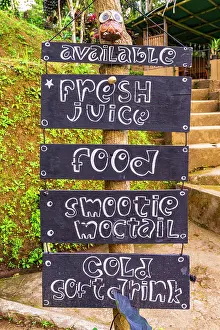 available
FRESH
JUICE
FOOD
SMOOTIE
MOCTAIL
COLD
SOFTDRINK